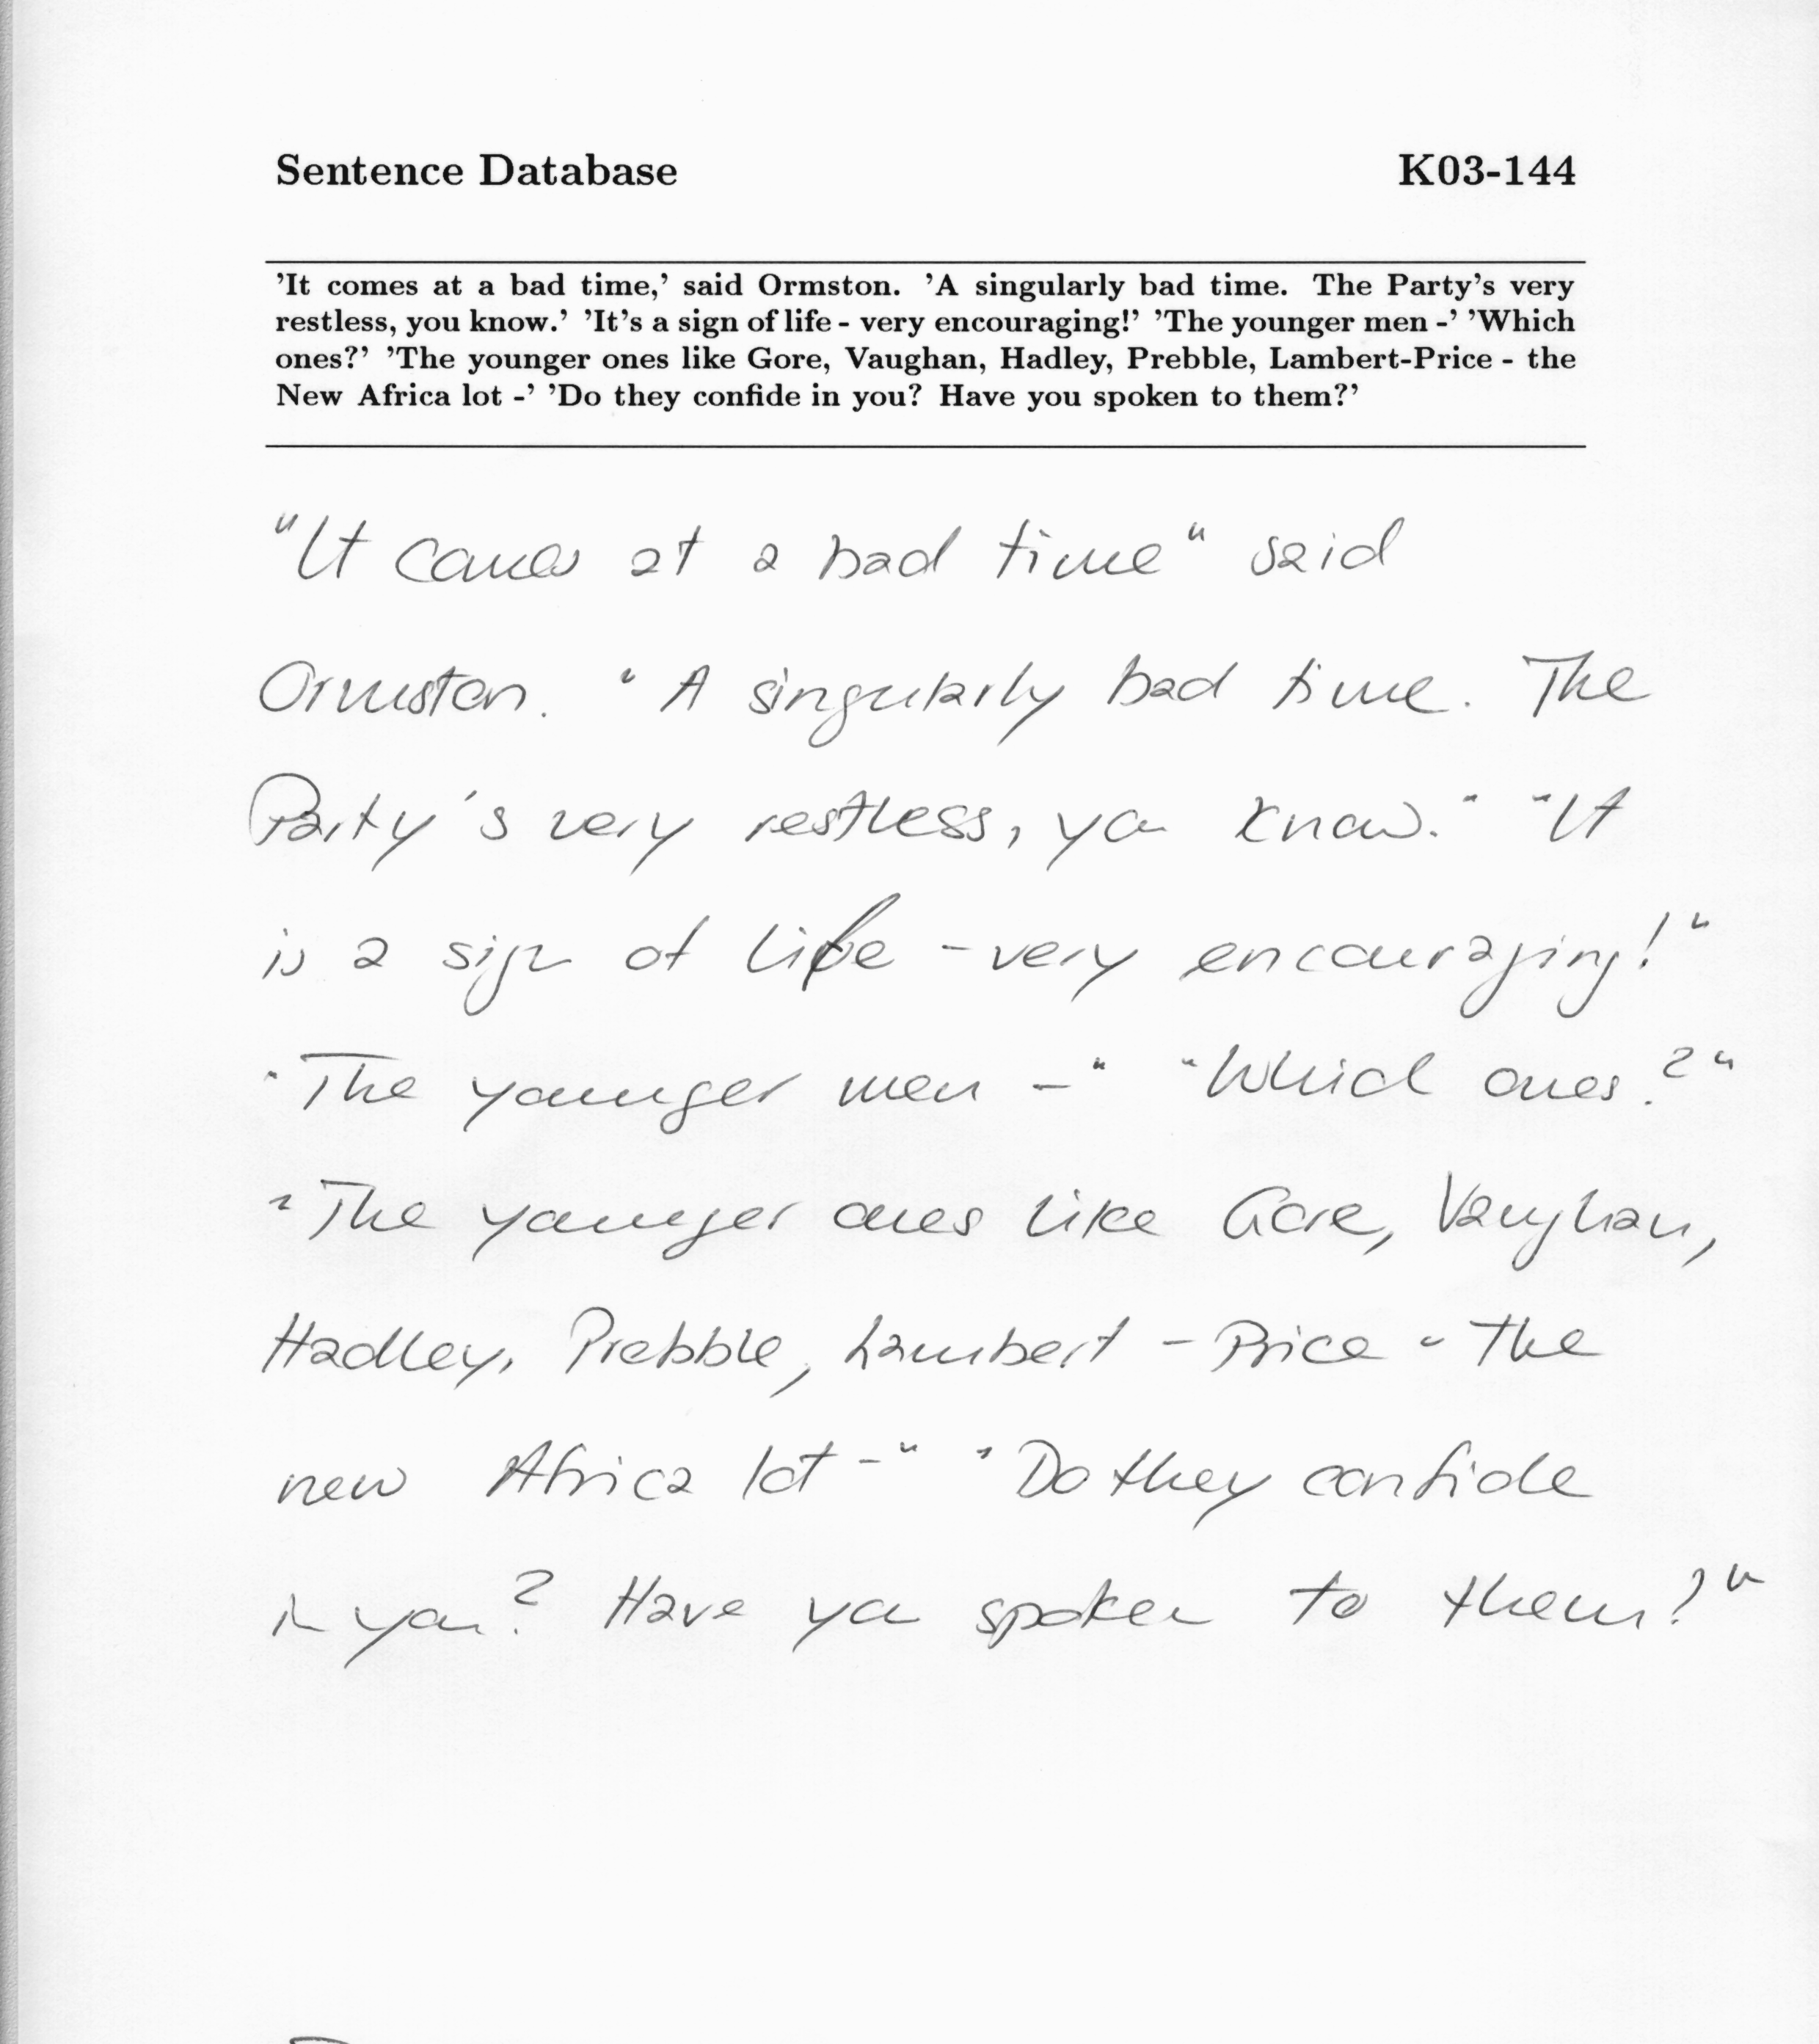 Sentence Database K03-144
’It comes at a bad time,’ said Ormston. ’A singularly bad time. The Party’s very
restless, you know.’ ’It’s a sign of life - very encouraging!’ ’The younger men -’ ’Which
ones?’ ’The younger ones like Gore, Vaughan, Hadley, Prebble, Lambert-Price - the
New Africa lot -’ ’Do they confide in you? Have you spoken to them?’
"It comes at a bad time" said
Ormston. "A singularly bad time. The
Party's very restless, you know." "It
is a sign of life - very encouraging!"
"The younger men -" "Which ones?"
"The younger ones like Gore, Vaughan,
Hadley, Prebble, Lambert - Price - the
new Africa lot -" "Do they confide
in you? Have you spoken to them?"